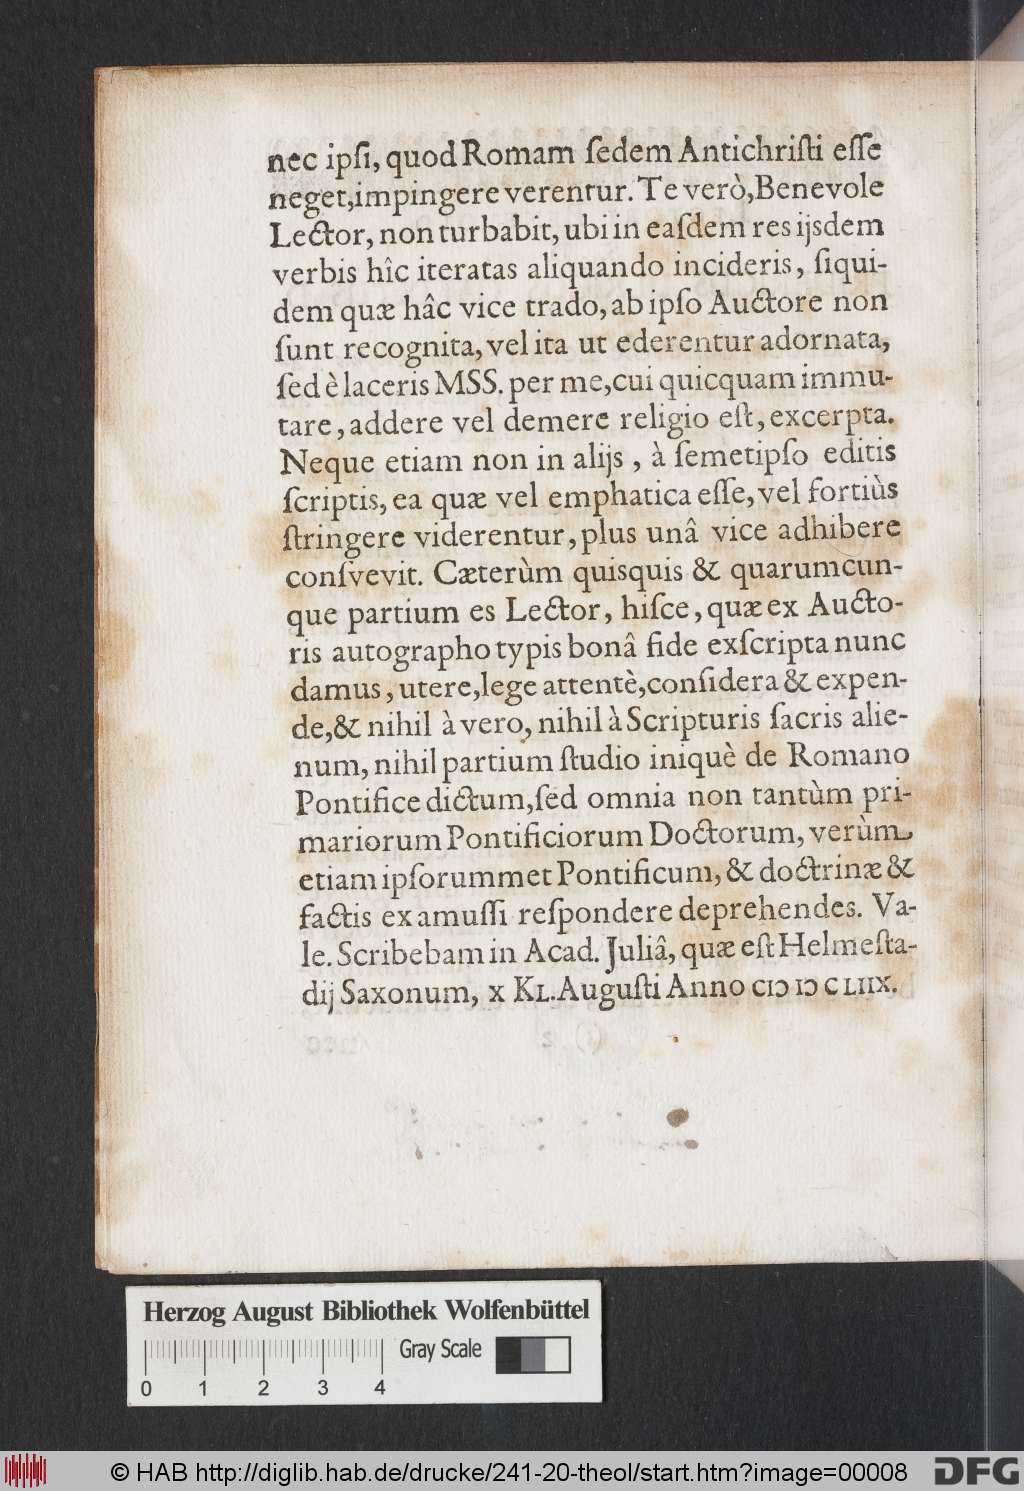 nec ipſi, quod Romam ſedem Antichriſti eſſe
neget, impingere verentur. Te verò, Benevole
Lector, non turbabit, ubi in eaſdem res ijsdem
verbis hîc iteratas aliquando incideris, ſiqui-
dem quæ hâc vice trado, ab ipſo Auctore non
ſunt recognita, vel ita ut ederentur adornata,
ſed è laceris MSS. per me, cui quicquam immu-
tare, addere vel demere religio eſt, excerpta.
Neque etiam non in alijs, à ſemetipſo editis
ſcriptis, ea quæ vel emphatica eſſe, vel fortiùs
ſtringere viderentur, plus unâ vice adhibere
conſvevit. Cæterùm quisquis & quarumcun-
que partium es Lector, hiſce, quæ ex Aucto-
ris autographo typis bonâ fide exſcripta nunc
damus, utere, lege attentè, conſidera & expen-
de, & nihil à vero, nihil à Scripturis ſacris alie-
num, nihil partium ſtudio iniquè de Romano
Pontifice dictum, ſed omnia non tantùm pri-
mariorum Pontificiorum Doctorum, verùm
etiam ipſorummet Pontificum, & doctrinæ &
factis ex amuſſi reſpondere deprehendes. Va-
le. Scribebam in Acad. Juliâ, quæ eſt Helmeſta-
dij Saxonum, X KL. Auguſti Anno CIↃ IↃ C LIIX.
Herzog August Bibliothek Wolfenbüttel
Gray Scale
0 1 2 3 4
© HAB http://diglib.hab.de/drucke/241-20-theol/start.htm?image=00008
DFG